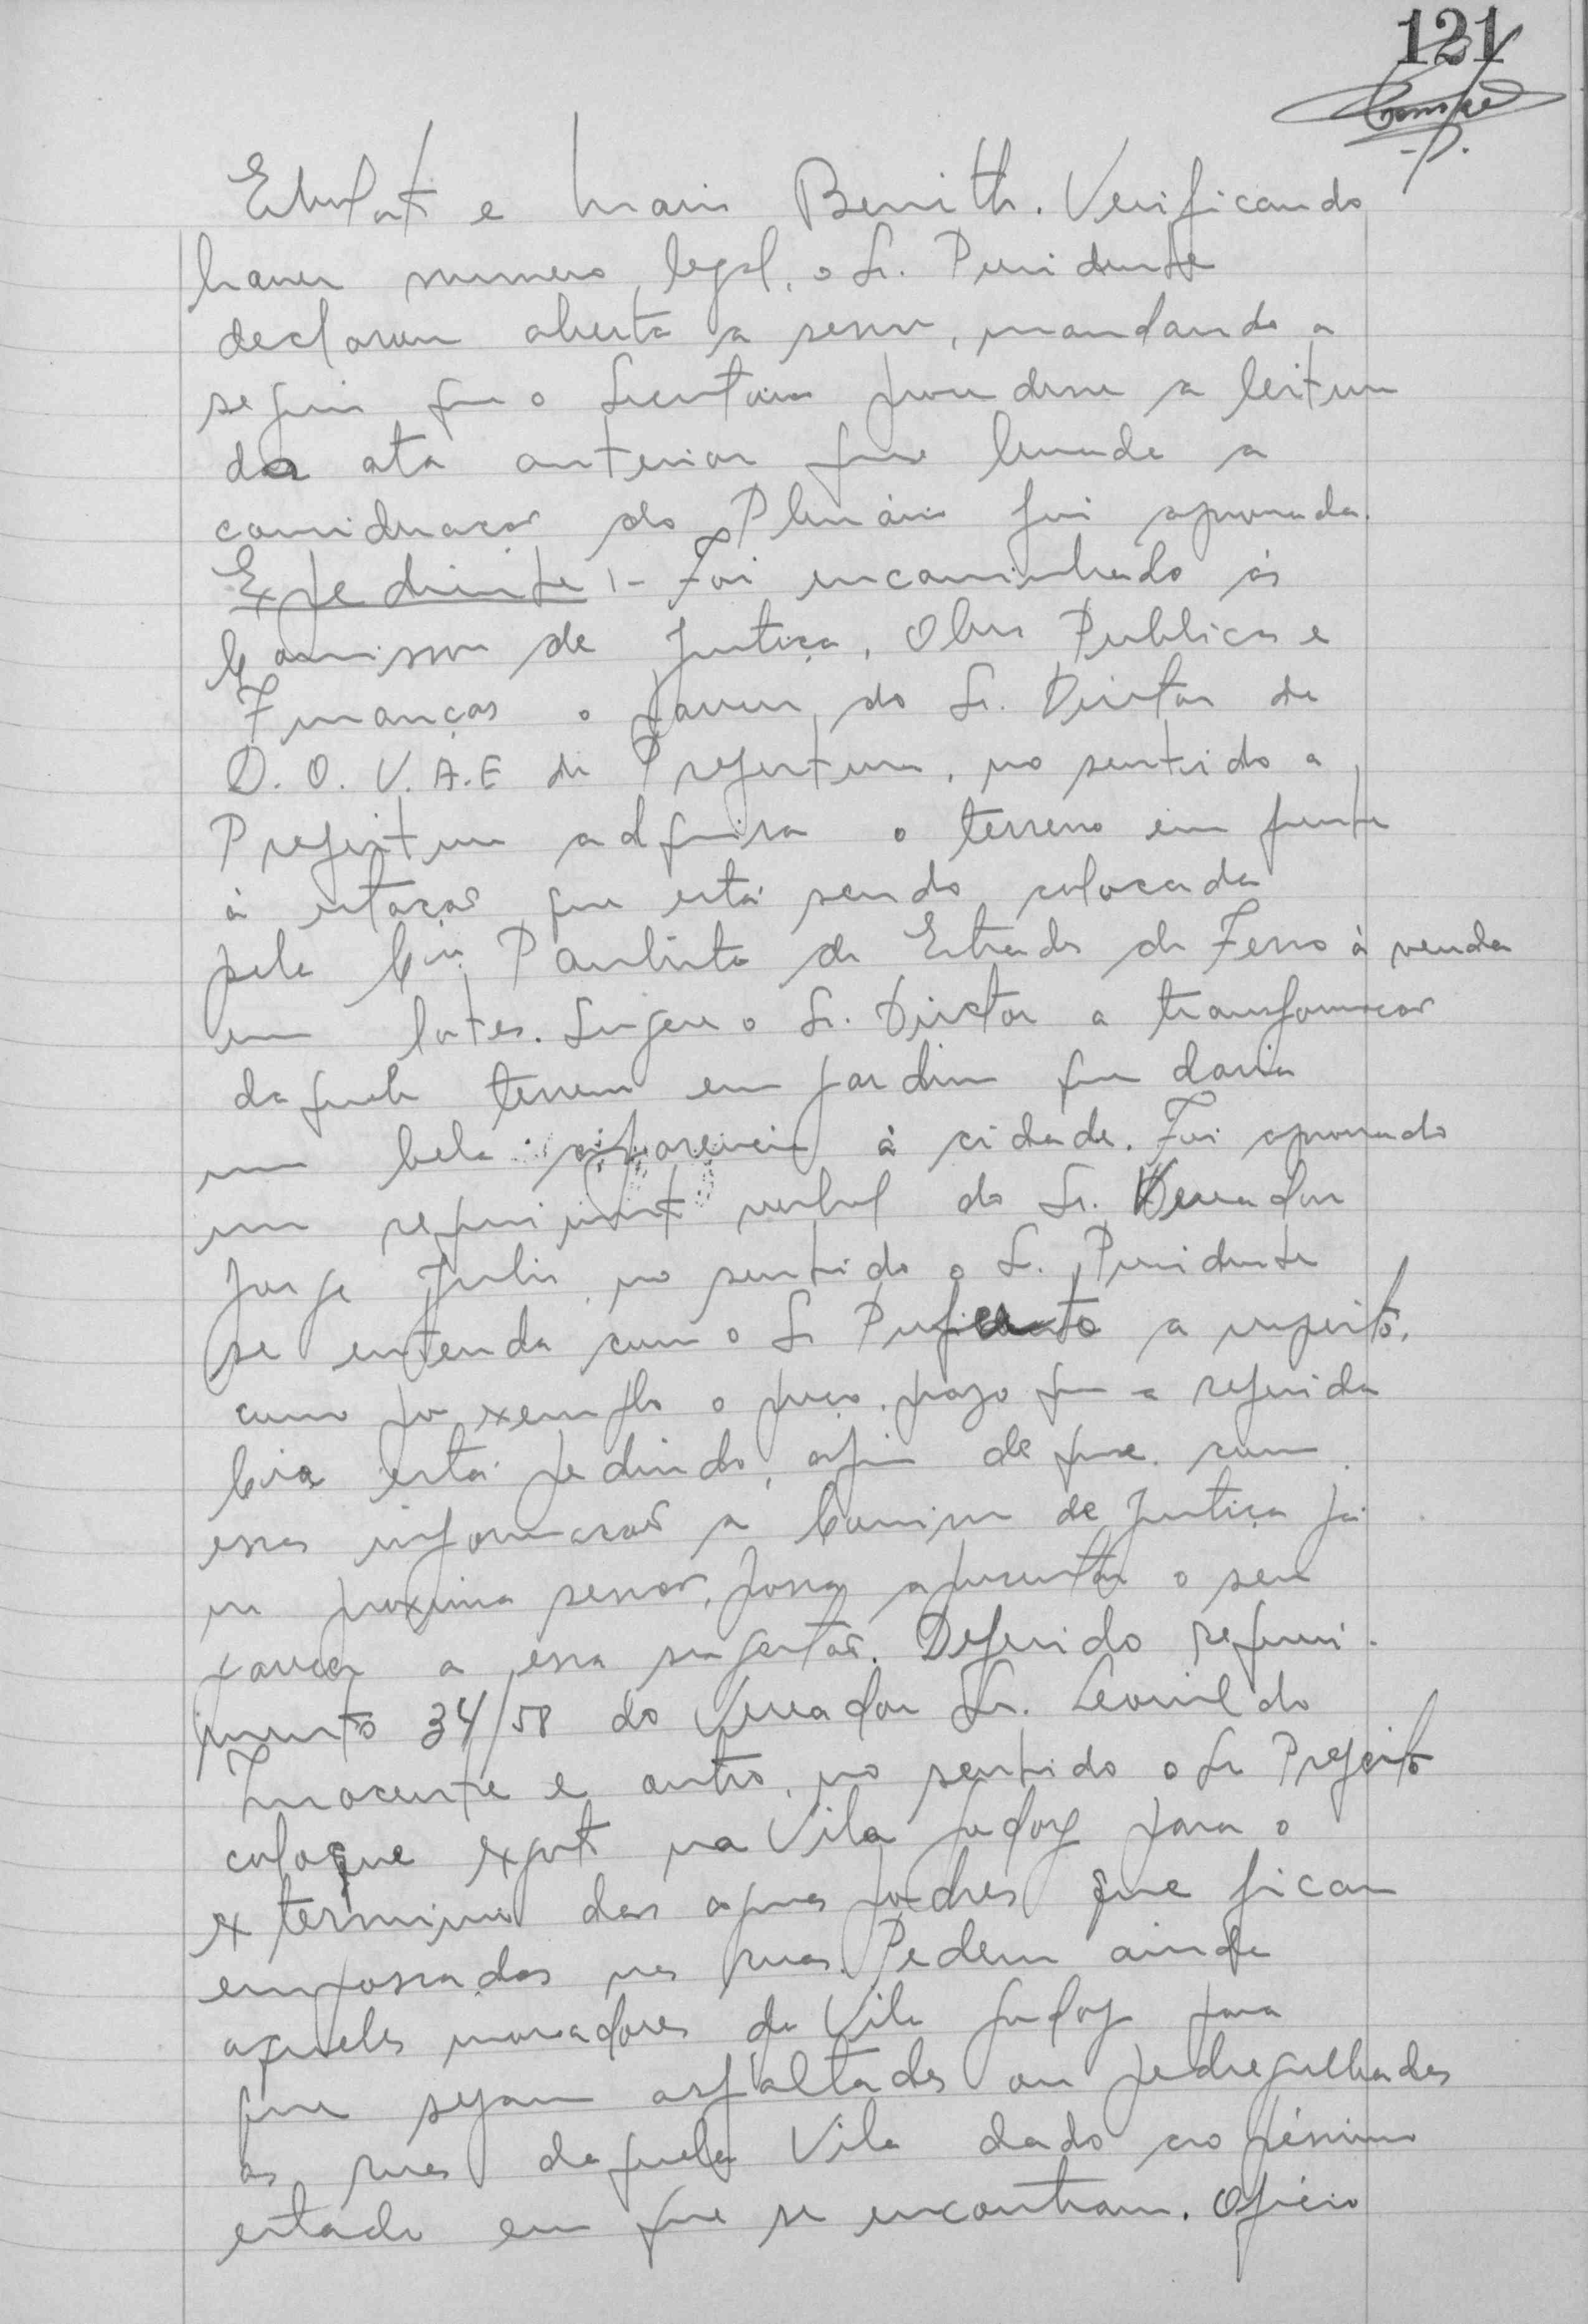 121
e Mario Benith. Verificando
haver numero legal, o Sr. Presidente
declarou aberta a sessão, mandando a
seguir que o Secretario procedesse a leitura
da ata anterior que levada a
consideração do Plenário foi aprovada.
Expediente:- Foi encaminhado ás
Comissões de Justiça, Obras Publicas e
Finanças o parecer do Sr. Diretor da
D.O.V.A.E da Prefeitura, no sentido a
Prefeitura adquira o terreno em frente
à estação que está sendo colocada
pela Cia. Paulista de Estrada de Ferro à venda
em lotes. Sugere o Sr. Diretor a transformação
daquele terreno em jardim que daria
uma bela aparencia à cidade. Foi aprovado
um requerimento verbal do Sr. Vereador
Jorge Julio no sentido o Sr. Presidente
se entenda com o Sr Prefeito a respeito,
como por exemplo o preço, prazo que a referida
Cia está pedindo, afim de que com
essas informações a Comissão de Justiça já
na proxima sessão, possa apresentar o seu
parecer a essa sugestão. Deferido requeri-
mento 34/58 do Vereador Sr. Leonildo
Inocente e outro, no sentido o Sr Prefeito
coloque esgoto na Vila Godoy para o
exterminio das aguas podres que ficam
empossadas nas ruas. Pedem ainda
aqueles moradores da Vila Godoy para
que sejam asfaltadas ou pedregulhadas
as ruas daquela Vila dado ao péssimo
estado em que se encontram. Oficio